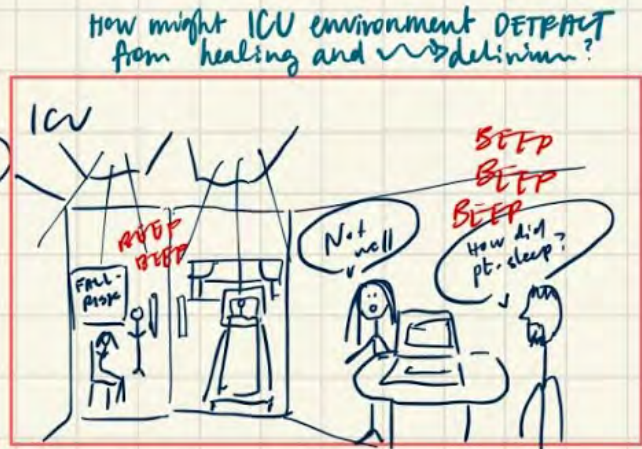 How might ICU environment DETRACT
from healing and delirium?
ICU
BEEP
BEEP
BEEP
BEEP
BEEP
FALL-
RISK
Not
well
How did
pt. sleep?